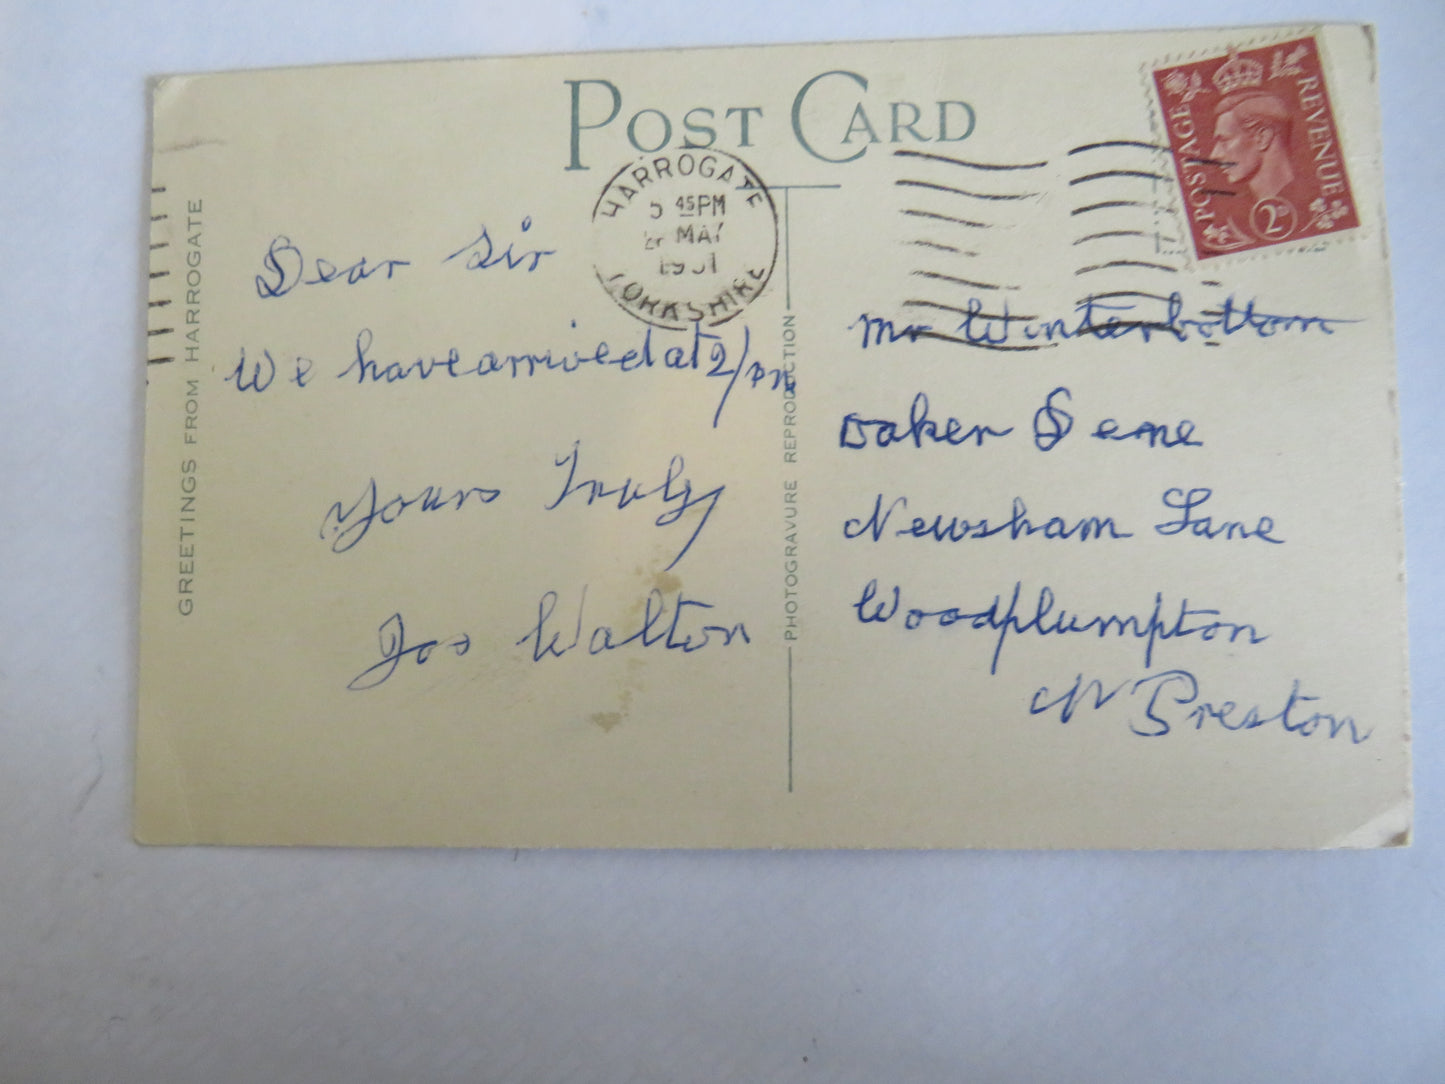 POST CARD
POSTAGE
REVENUE
2D
HARROGATE
45PM
MAY
YORKSHIRE
GREETINGS FROM HARROGATE
Dear Sir
We have arrived at 2/pm
Yours Truly
Jos Walton
PHOTOGRAVURE REPRODUCTION
Mr Winterbottom
Daker Dene
Newsham Lane
Woodplumpton
Nr Preston